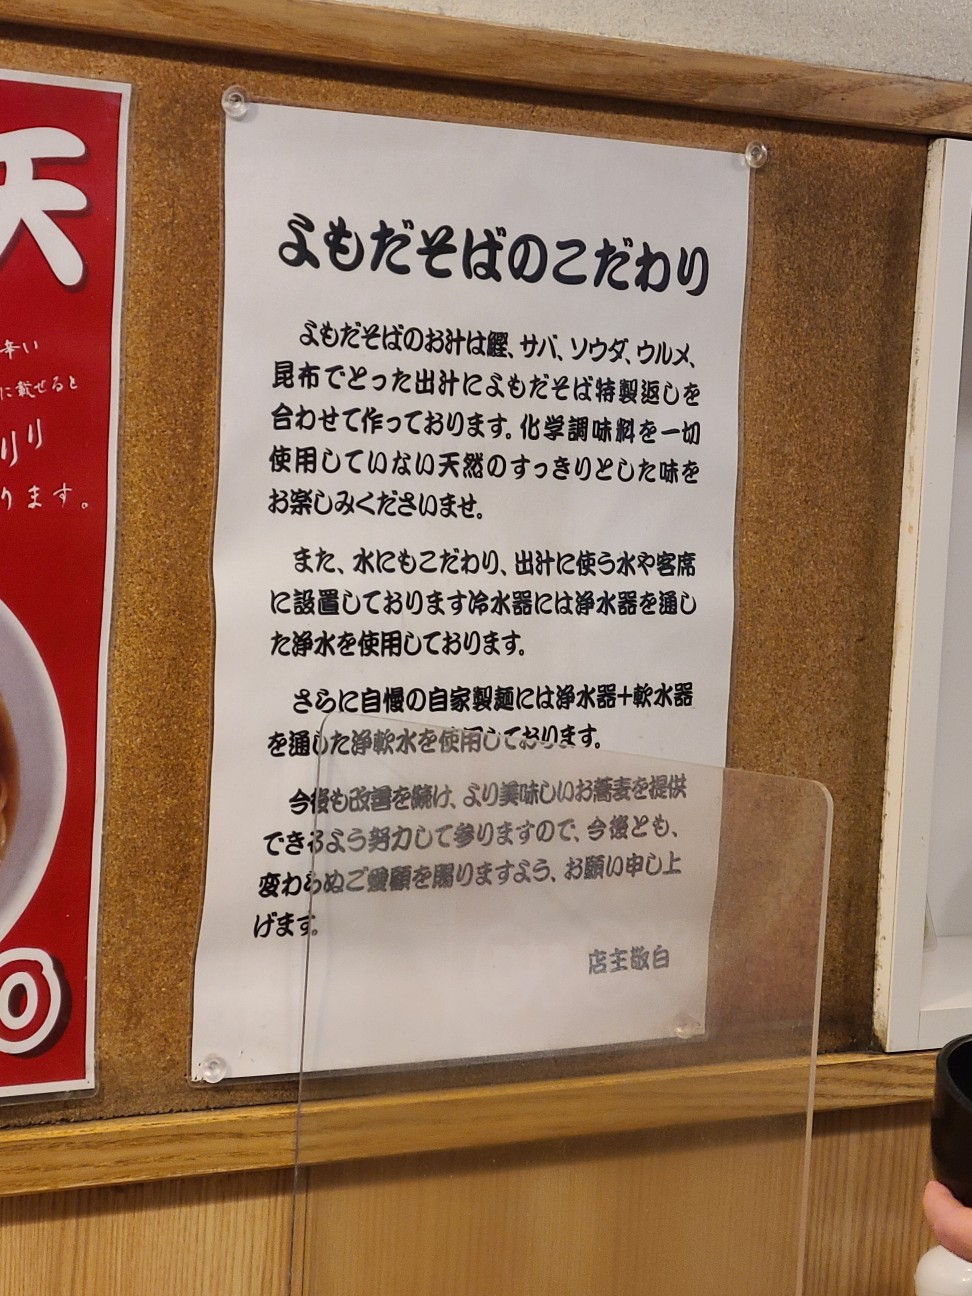 天
辛い
に載せると
リリ
ります。
0
よもだそばのこだわり
よもだそばのお汁は鰹、サバ、ソウダ、ウルメ、
昆布でとった出汁によもだそば特製返しを
合わせて作っております。化学調味料を一切
使用していない天然のすっきりとした味を
お楽しみくださいませ。
また、水にもこだわり、出汁に使う水や客席
に設置しております冷水器には浄水器を通し
た浄水を使用しております。
さらに自慢の自家製麺には浄水器+軟水器
を通した浄軟水を使用しております。
今後も改善を続け、より美味しいお蕎麦を提供
できるよう努力して参りますので、今後とも、
変わらぬご愛顧を賜りますよう、お願い申し上
げます。
店主敬白